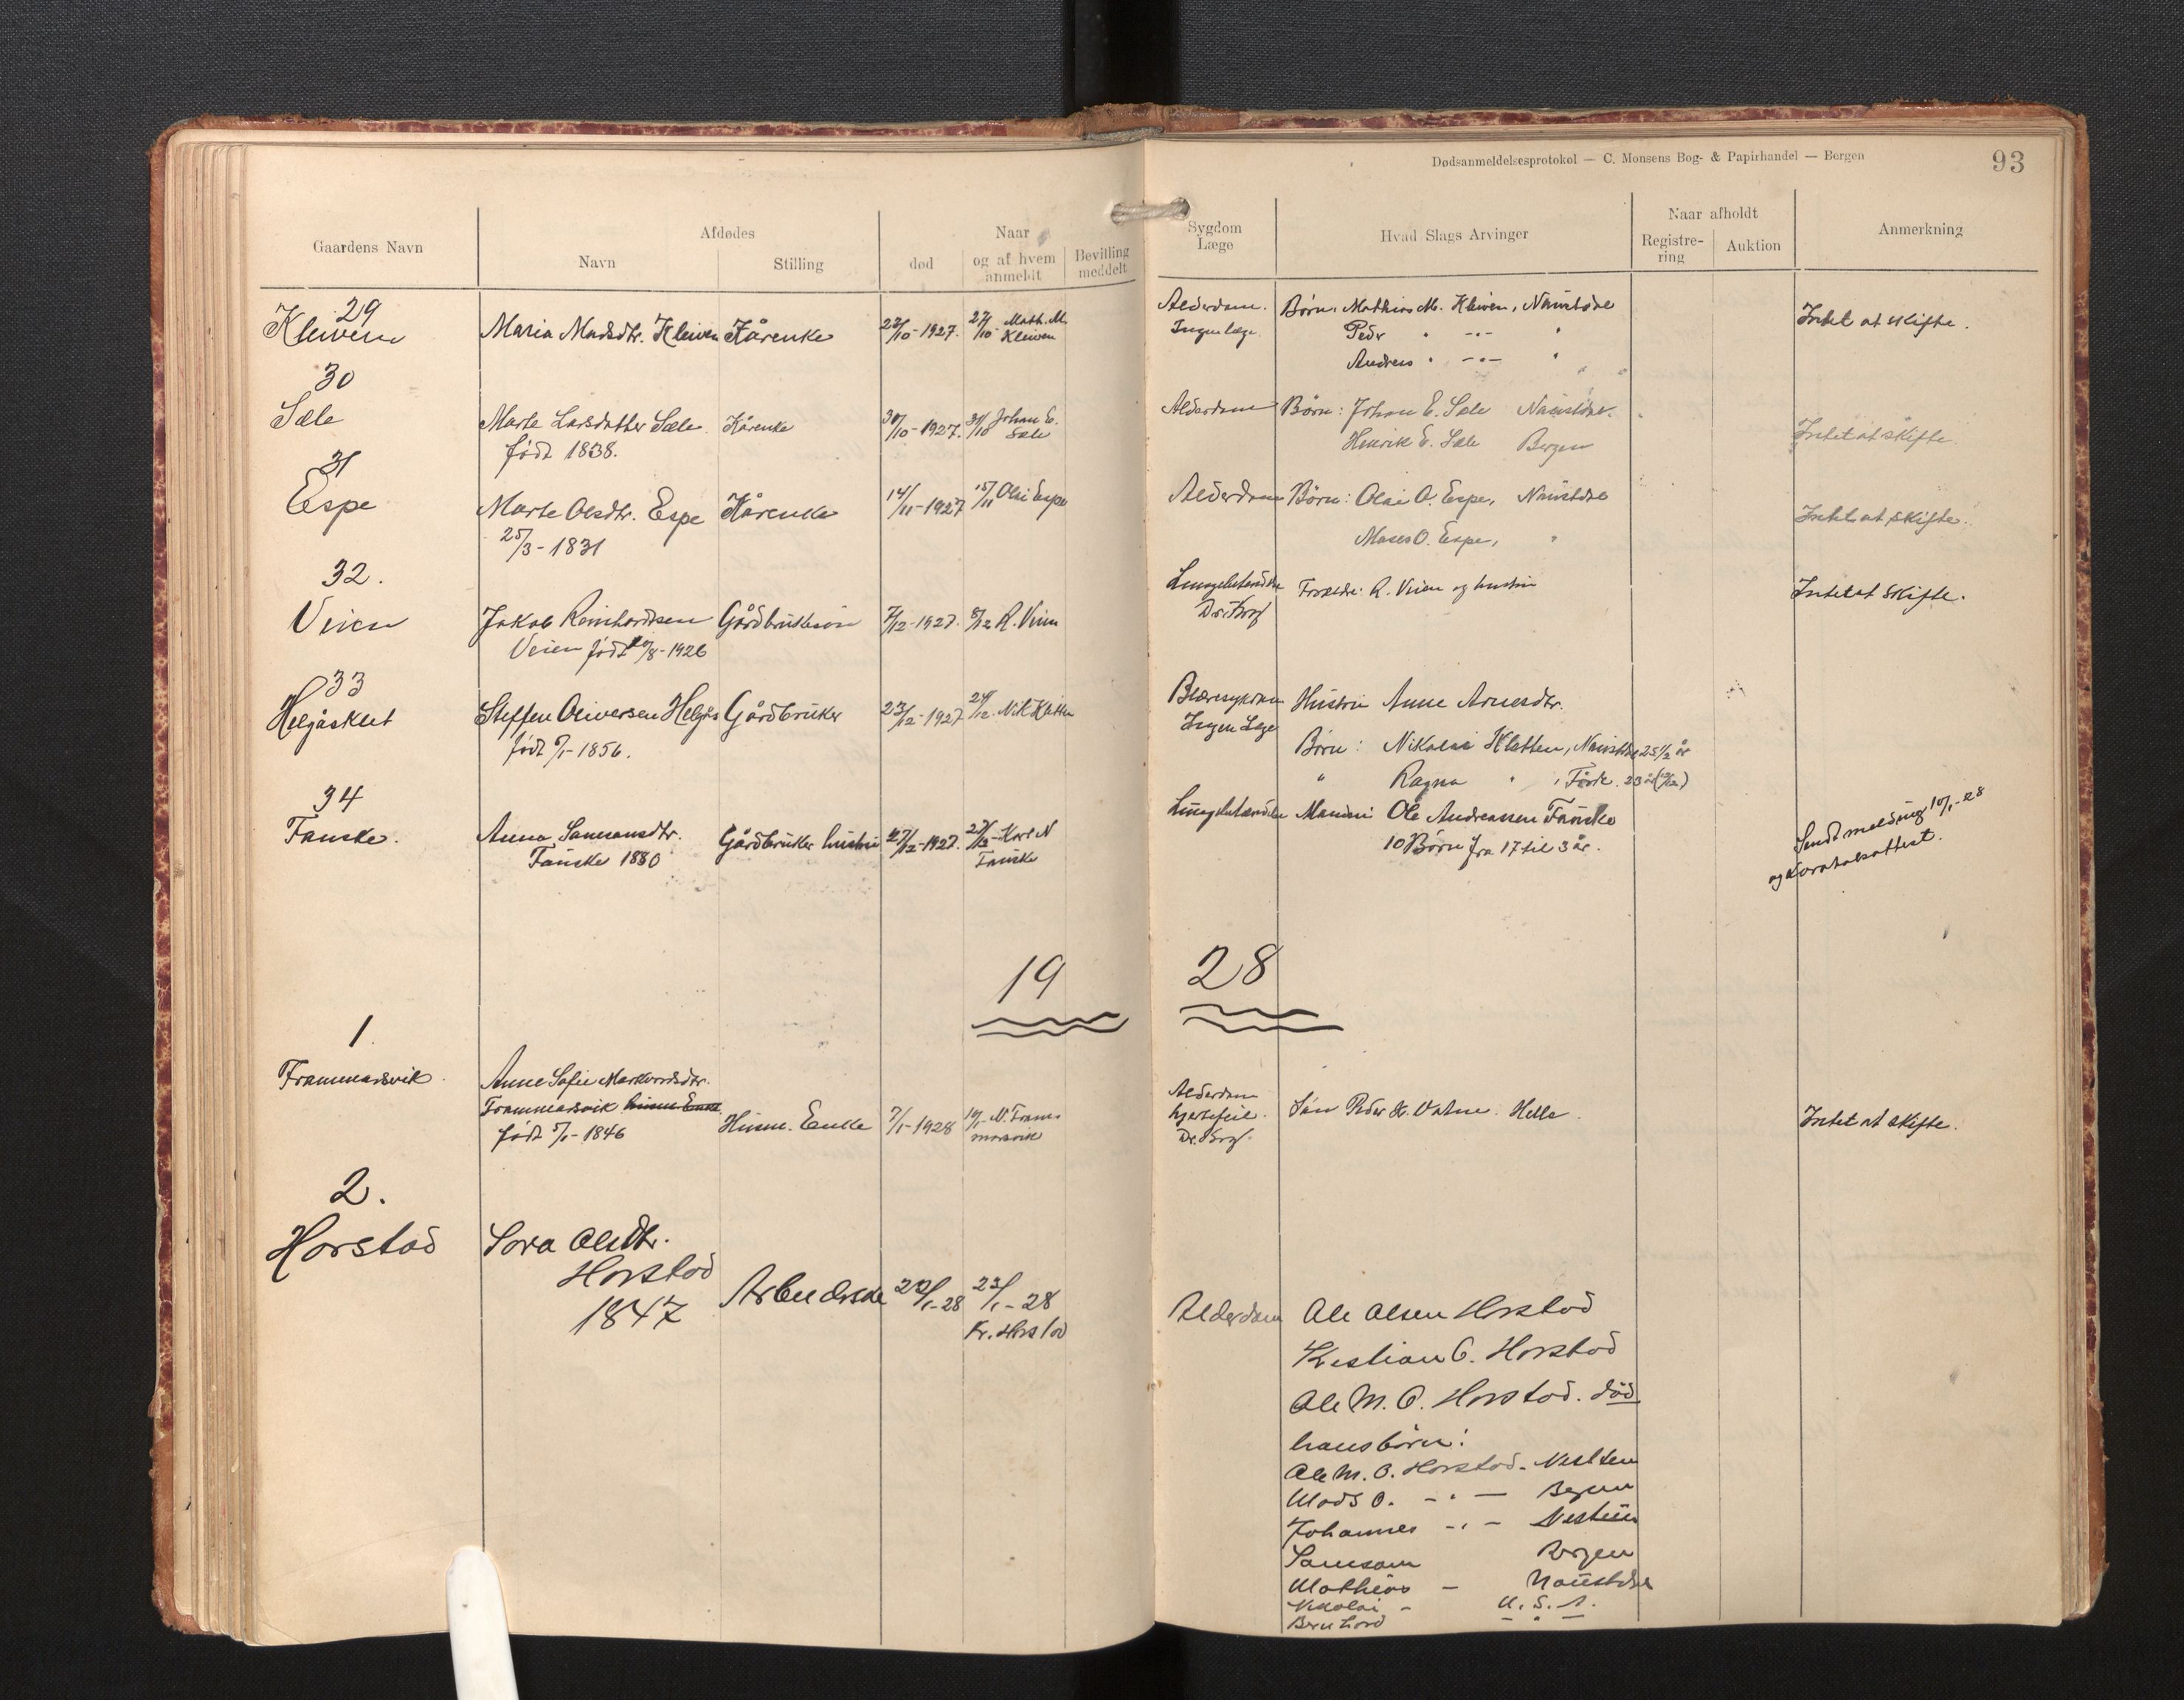 Dødsanmeldelsesprotokol — C. Monsens Bog- & Papirhandel — Bergen
93
Gaardens Navn
Afdødes
Navn
Stilling
Naar
død
og af hvem anmeldt
Bevilling meddelt
Sygdom Læge
Hvad Slags Arvinger
Naar afholdt
Registrering
Auktion
Anmerkning
29
Kleiven
Maria Madsdtr. Kleiven
Kårenke
23/10-1927.
27/10 Math. M. Kleiven
Alderdom.
Ingen læge
Børn: Mathias M. Kleiven, Naustdal
Peder " -"- "
Andreas " -"- "
Intet at skifte.
30
Sæle
Marte Larsdatter Sæle
født 1838.
Kårenke
30/10-1927.
31/10 Johan E. Sæle
Alderdom
Børn: Johan E. Sæle Naustdal.
Henrik E. Sæle Bergen
Intet at skifte.
31
Espe
Marte Olsdtr. Espe
25/3-1831
Kårenke
14/11-1927
15/11 Olai Espe
Alderdom
Børn: Olai O. Espe, Naustdal
Moses O. Espe, "
Intet at skifte.
32.
Veien
Jakob Reinhardsen
Veien født /8-1926
Gårdbrukersøn
7/12-1927.
8/12 R. Veien
Lungebetændelse
Dr. Krog
Forældre: R. Veien og hustru
Intet at skifte.
33
Helgåsklet
Steffen Oliversen Helgås
født 6/1-1856.
Gårdbruker
23/12-1927
24/12. Nik Kletten
Blæresykdom
Ingen Læge
Hustru Anne Arnesdtr.
Børn: Nikolai Kletten, Naustdal 25 1/2 år
" Ragna " , Førde. 23 år
34
Fauske.
Anna Samsonsdtr.
Fauske 1880
Gårdbruker hustru
27/12-1927.
27/12-Karl N Fauske
Lungebetændelse
Mannen: Ole Andreassen Fauske
10 Børn fra 17 til 3 år.
Sendt melding 10/1-28
og
19 28
1
Frammarsvik
Anne Sofie Markvordsdtr.
Frammarsvik
født 5/1-1846
Husm. Enke
7/1-1928
10/1-N. Frammarsvik
Alderdom
hjertefeil.
Dr. Krog.
Søn Peder K. Vatne. Hella.
Intet at skifte.
2.
Horstad
Sara Olsdtr.
Horstad
1847
Arbeiderske
22/1-28
23/1-28
Kr. Horstad
Alderdom
Ole Olsen Horstad
Kristian O. Horstad
Ole M. O. Horstad. død
hans børn:
Ole M. O. Horstad.
Mads O. -"- Bergen
Johannes -"-
Samson Bergen
Mathias - Naustdal
Nikolai - U.S.A.
Bernhard - " -